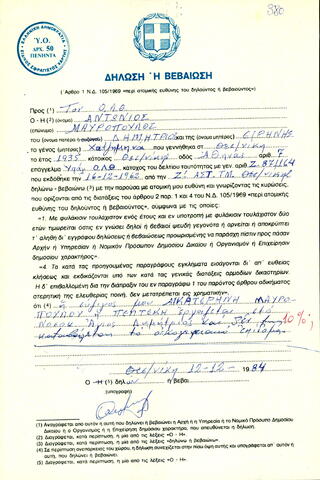 380
ΕΛΛΗΝΙΚΗ ΔΗΜΟΚΡΑΤΙΑ
Υ.Ο.
ΔΡΧ. 50
ΠΕΝΗΝΤΑ
ΔΗΛΩΣΗ Ή ΒΕΒΑΙΩΣΗ
(Άρθρο 1 Ν.Δ. 105/1969 «περί ατομικής ευθύνης του δηλούντος ή βεβαιούντος»)
Προς (1) Τον Ο.Λ.Θ.
Ο - Η (2) (όνομα) ΑΝΤΩΝΙΟΣ
(επώνυμο) ΜΑΥΡΟΠΟΥΛΟΣ
του (όνομα πατέρα) ΔΗΜΗΤΡΙΟΣ και της (όνομα μητέρας) ΕΙΡΗΝΗΣ
το γένος (μητέρας) που γεννήθηκε στ Θεσ/νίκη
το έτος 1935 κάτοικος Θεσ/νίκης οδός Αθηνάς 7
επάγγελμα Υπάλ. Ο.Λ.Θ. κάτοχος του δελτίου ταυτότητας με αριθ. Ζ. 871164
που εκδόθηκε την 16-12-1962 από την Ζ' ΑΣΤ.ΤΜ. Θεσ/νίκης
δηλώνω - βεβαιώνω (3) με την παρούσα με ατομική μου ευθύνη και γνωρίζοντας τις κυρώσεις,
που ορίζονται από τις διατάξεις του άρθρου 2 παρ. 1 και 4 του Ν.Δ. 105/1969 «περί ατομικής
ευθύνης του δηλούντος ή βεβαιούντος», σύμφωνα με τις οποίες:
«1. Με φυλάκιση τουλάχιστον ενός έτους και εν υποτροπή με φυλάκιση τουλάχιστον δύο
ετών τιμωρείται όστις εν γνώσει δηλοί ή βεβαιοί ψευδή γεγονότα ή αρνείται ή αποκρύπτει
τ' αληθή δι' εγγράφου δηλώσεως ή βεβαιώσεως προκειμένης να παράσχη πίστιν προς πάσαν
Αρχή ή Υπηρεσίαν ή Νομικόν Πρόσωπον Δημοσίου Δικαίου ή Οργανισμόν ή Επιχείρησιν
δημοσίου χαρακτήρος».
«4. Τα κατά της προηγουμένας παραγράφους εγκλήματα εισάγονται δι' απ' ευθείας
κλήσεως και εκδικάζονται υπό των κατά τας γενικάς διατάξεις αρμοδίων δικαστηρίων.
Η δ' επιβαλλομένη δια την διάπραξιν του εν παραγράφω 1 του παρόντος άρθρου αδικήματος
στερητική της ελευθερίας ποινή, δεν μετατρέπεται εις χρηματικήν».
ότι (4) η σύζυγός μου ΑΙΚΑΤΕΡΙΝΗ ΜΑΥΡΟ-
ΠΟΥΛΟΥ εργάζεται στο
Άγιος Δημήτριος και δεν
10%;
το οικογενειακό επίδομα
Θεσ/νίκη 12-12- 1984
Ο - Η (3) δηλών ή βεβαι
(υπογραφή)
(1) Αναγράφεται από αυτόν ή αυτή που δηλώνει ή βεβαιώνει η Αρχή ή η Υπηρεσία ή το Νομικό Πρόσωπο Δημοσίου
Δικαίου ή ο Οργανισμός ή η Επιχείρηση δημοσίου χαρακτήρα, που απευθύνεται η δήλωση.
(2) Διαγράφεται, κατά περίπτωση, η μία από τις λέξεις «Ο - Η».
(3) Διαγράφεται, κατά περίπτωση, η μία από τις λέξεις «δηλώνω ή βεβαιώνω».
(4) Σε περίπτωση ανεπάρκειας του χώρου, η δήλωση συνεχίζεται στην πίσω όψη αυτής και υπογράφεται απ' αυτόν ή
αυτή, που δηλώνει ή βεβαιώνει.
(5) Διαγράφεται, κατά περίπτωση, η μία από τις λέξεις «Ο - Η».